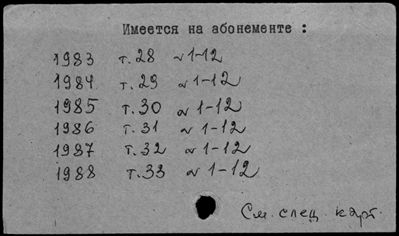 Имеется на абонементе :
1983 т. 28 № 1-12
1984 т. 29 № 1-12
1985 т. 30 № 1-12
1986 т. 31 № 1-12
1987 т. 32 № 1-12
1988 т. 33 № 1-12
См. спец. карт.